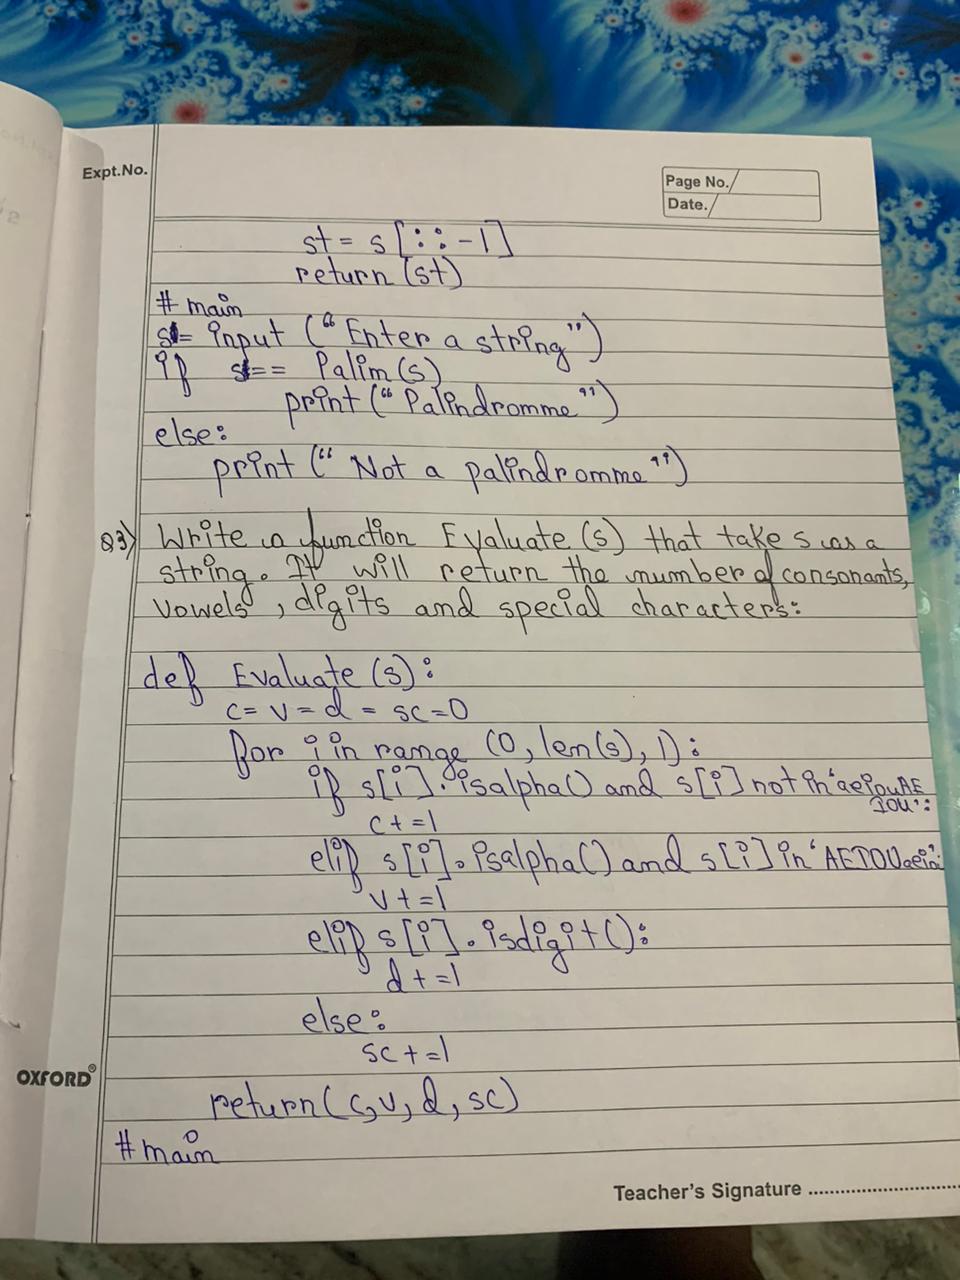 Expt.No.
Page No.
Date.
st = s [::-1]
return (st)
# main
s = input ("Enter a string")
if s == Palim(s)
print ("Palindromme")
else:
print ("Not a palindromme")
Q3) Write a function Evaluate (s) that take s as a
string. It will return the number of consonants,
vowels, digits and special characters:
def Evaluate (s):
c = v = d = sc = 0
for i in range (0, len(s), 1):
if s[i].isalpha() and s[i] not in 'aeiouAE
IOU':
c+=1
elif s[i].isalpha() and s[i] in 'AEIOUaei
v+=1
elif s[i].isdigit():
d+=1
else:
sc+=1
return(c,v,d,sc)
# main
OXFORD®
Teacher's Signature ..........................